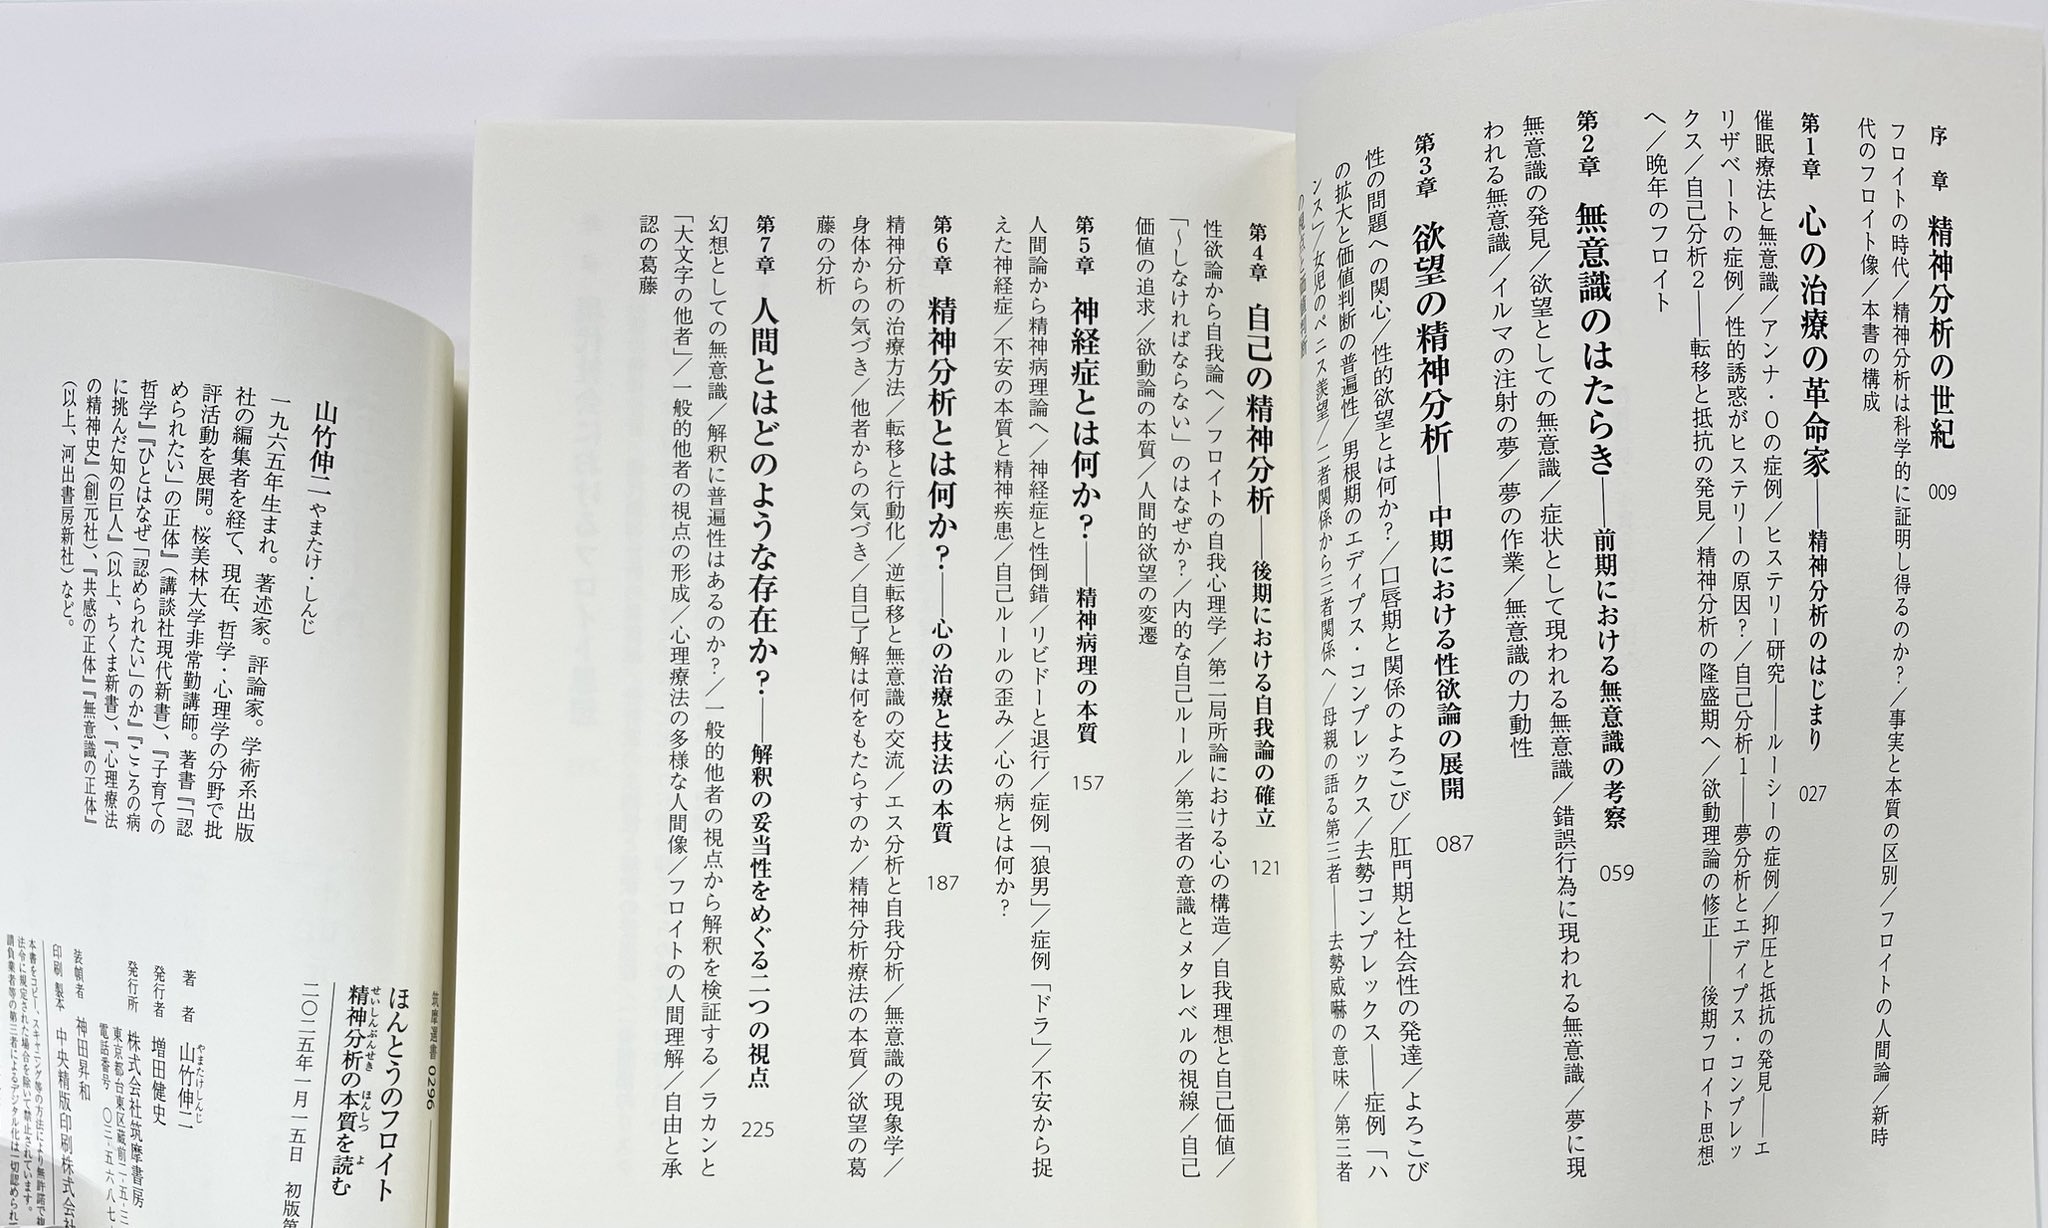 序　章　精神分析の世紀　009
フロイトの時代／精神分析は科学的に証明し得るのか？／事実と本質の区別／フロイトの人間論／新時
代のフロイト像／本書の構成
第1章　心の治療の革命家——精神分析のはじまり　027
催眠療法と無意識／アンナ・Oの症例／ヒステリー研究——ルーシーの症例／抑圧と抵抗の発見——エ
リザベートの症例／性的誘惑がヒステリーの原因？／自己分析1——夢分析とエディプス・コンプレッ
クス／自己分析2——転移と抵抗の発見／精神分析の隆盛期へ／欲動理論の修正——後期フロイト思想
へ／晩年のフロイト
第2章　無意識のはたらき——前期における無意識の考察　059
無意識の発見／欲望としての無意識／症状として現われる無意識／錯誤行為に現われる無意識／夢に現
われる無意識／イルマの注射の夢／夢の作業／無意識の力動性
第3章　欲望の精神分析——中期における性欲論の展開　087
性の問題への関心／性的欲望とは何か？／口唇期と関係のよろこび／肛門期と社会性の発達／よろこび
の拡大と価値判断の普遍性／男根期のエディプス・コンプレックス／去勢コンプレックス——症例「ハ
ンス」／女児のペニス羨望／二者関係から三者関係へ／母親の語る第三者——去勢威嚇の意味／第三者
第4章　自己の精神分析——後期における自我論の確立　121
性欲論から自我論へ／フロイトの自我心理学／第二局所論における心の構造／自我理想と自己価値／
「～しなければならない」のはなぜか？／内的な自己ルール／第三者の意識とメタレベルの視線／自己
価値の追求／欲動論の本質／人間的欲望の変遷
第5章　神経症とは何か？——精神病理の本質　157
人間論から精神病理論へ／神経症と性倒錯／リビドーと退行／症例「狼男」／症例「ドラ」／不安から捉
えた神経症／不安の本質と精神疾患／自己ルールの歪み／心の病とは何か？
第6章　精神分析とは何か？——心の治療と技法の本質　187
精神分析の治療方法／転移と行動化／逆転移と無意識の交流／エス分析と自我分析／無意識の現象学／
身体からの気づき／他者からの気づき／自己了解は何をもたらすのか／精神分析療法の本質／欲望の葛
藤の分析
第7章　人間とはどのような存在か？——解釈の妥当性をめぐる二つの視点　225
幻想としての無意識／解釈に普遍性はあるのか？／一般的他者の視点から解釈を検証する／ラカンと
「大文字の他者」／一般的他者の視点の形成／心理療法の多様な人間像／フロイトの人間理解／自由と承
認の葛藤
山竹伸二　やまたけ・しんじ
一九六五年生まれ。著述家。評論家。学術系出版
社の編集者を経て、現在、哲学・心理学の分野で批
評活動を展開。桜美林大学非常勤講師。著書『「認
められたい」の正体』（講談社現代新書）、『子育ての
哲学』『ひとはなぜ「認められたい」のか』『こころの病
に挑んだ知の巨人』（以上、ちくま新書）、『心理療法
の精神史』（創元社）、『共感の正体』『無意識の正体』
（以上、河出書房新社）など。
筑摩選書 0296
ほんとうのフロイト
精神分析の本質を読む
せいしんぶんせき　ほんしつ　よ
二〇二五年一月一五日　初版第
著　者　山竹伸二
やまたけしんじ
発行者　増田健史
発行所　株式会社筑摩書房
東京都台東区蔵前二-五-三
電話番号　〇三-五六八七-
装幀者　神田昇和
印刷 製本　中央精版印刷株式会社
本書をコピー、スキャニング等の方法により無許諾で複
法令に規定された場合を除いて禁止されています。
請負業者等の第三者によるデジタル化は一切認められて